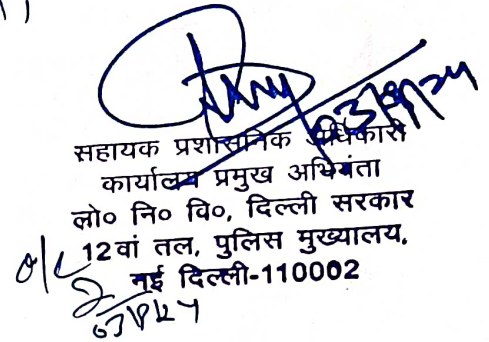 सहायक प्रशासनिक अधिकारी
कार्यालय प्रमुख अभियंता
लो० नि० वि०, दिल्ली सरकार
12वां तल, पुलिस मुख्यालय,
o/c नई दिल्ली-110002